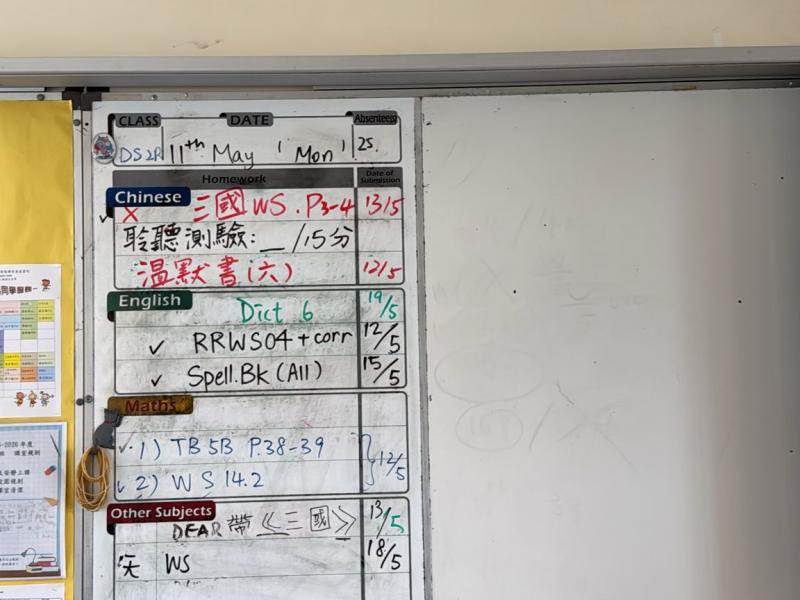 CLASS DATE Absentees
11th May 'Mon' 25.
Homework Date of Submission
Chinese
X 三國 WS. P3-4 13/5
聆聽測驗: __ /15分
溫默書(六) 12/5
English
Dict 6 19/5
✓ RRWS04 + corr 12/5
✓ Spell.Bk (All) 15/5
Maths
✓ 1) TB 5B P.38-39
✓ 2) WS 14.2 12/5
Other Subjects
DEAR 帶《三國》 13/5
WS 18/5
2026 年度